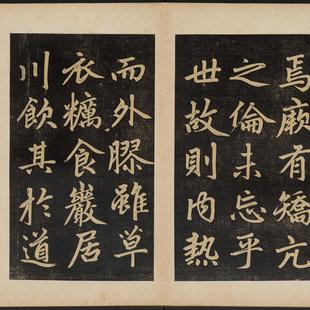 焉厥有矯亢
之倫未忘乎
世故則內熱
而外膠雖草
衣糲食巖居
川飲其於道